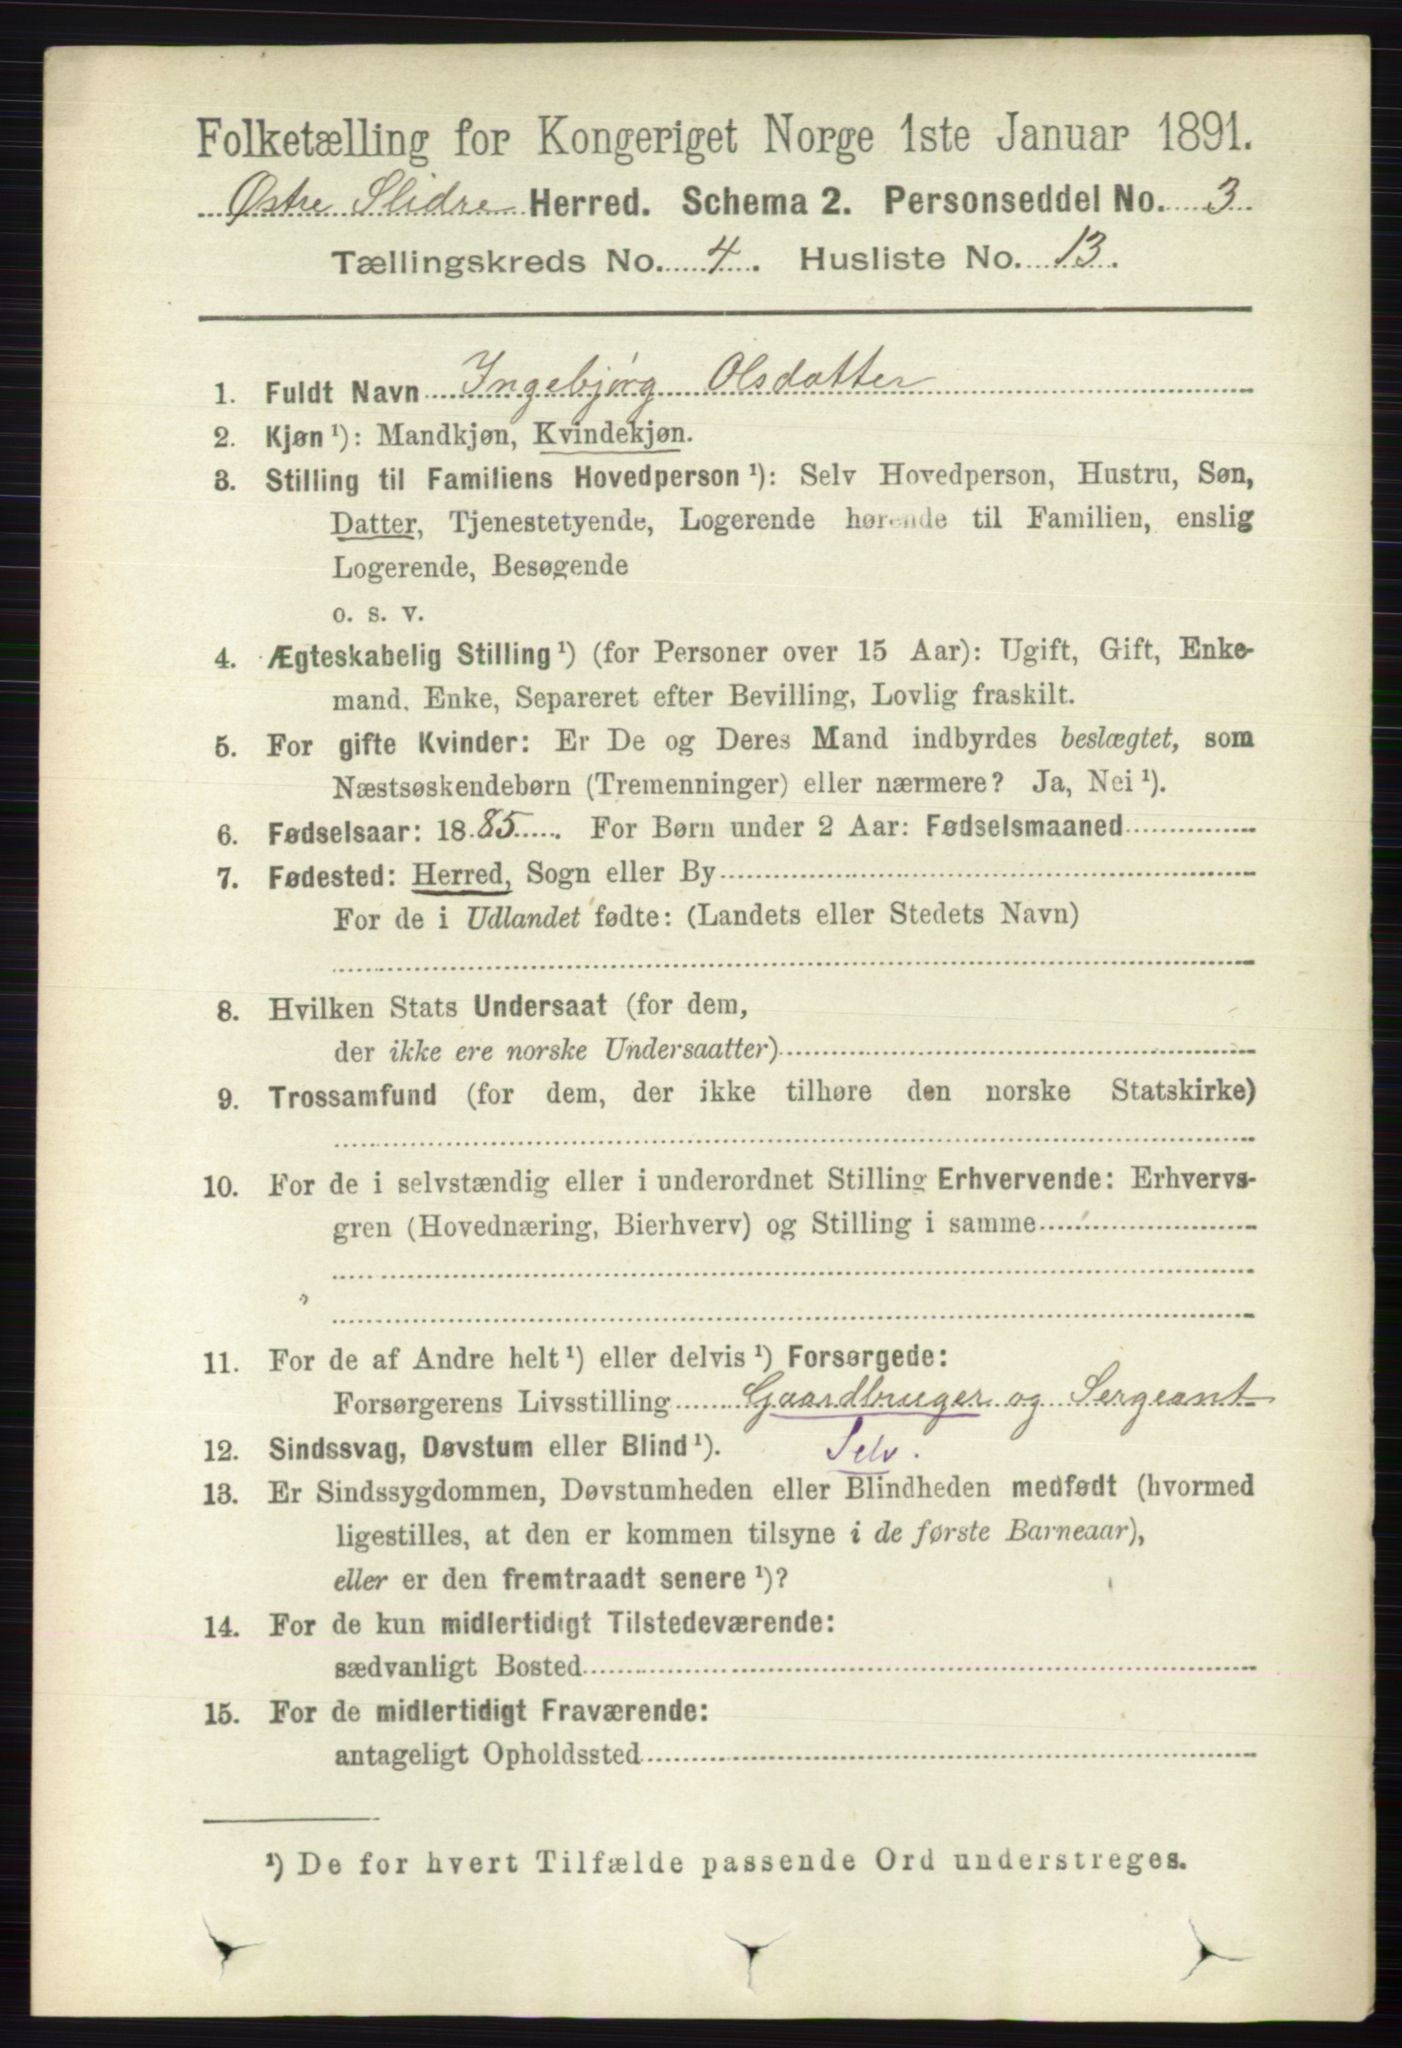 Folketælling for Kongeriget Norge 1ste Januar 1891.
Østre Slidre Herred. Schema 2. Personseddel No. 3
Tællingskreds No. 4. Husliste No. 13.
1. Fuldt Navn Ingebjørg Olsdatter
2. Kjøn ¹): Mandkjøn, Kvindekjøn.
3. Stilling til Familiens Hovedperson ¹): Selv Hovedperson, Hustru, Søn,
Datter, Tjenestetyende, Logerende hørende til Familien, enslig
Logerende, Besøgende
o. s. v.
4. Ægteskabelig Stilling ¹) (for Personer over 15 Aar): Ugift, Gift, Enke-
mand, Enke, Separeret efter Bevilling, Lovlig fraskilt.
5. For gifte Kvinder: Er De og Deres Mand indbyrdes beslægtet, som
Næstsøskendebørn (Tremenninger) eller nærmere? Ja, Nei ¹).
6. Fødselsaar: 1885. For Børn under 2 Aar: Fødselsmaaned
7. Fødested: Herred, Sogn eller By
For de i Udlandet fødte: (Landets eller Stedets Navn)
8. Hvilken Stats Undersaat (for dem,
der ikke ere norske Undersaatter)
9. Trossamfund (for dem, der ikke tilhøre den norske Statskirke)
10. For de i selvstændig eller i underordnet Stilling Erhvervende: Erhvervs-
gren (Hovednæring, Bierhverv) og Stilling i samme
11. For de af Andre helt ¹) eller delvis ¹) Forsørgede:
Forsørgerens Livsstilling Gaardbruger og Sergeant
12. Sindssvag, Døvstum eller Blind ¹). Selv.
13. Er Sindssygdommen, Døvstumheden eller Blindheden medfødt (hvormed
ligestilles, at den er kommen tilsyne i de første Barneaar),
eller er den fremtraadt senere ¹)?
14. For de kun midlertidigt Tilstedeværende:
sædvanligt Bosted
15. For de midlertidigt Fraværende:
antageligt Opholdssted
¹) De for hvert Tilfælde passende Ord understreges.